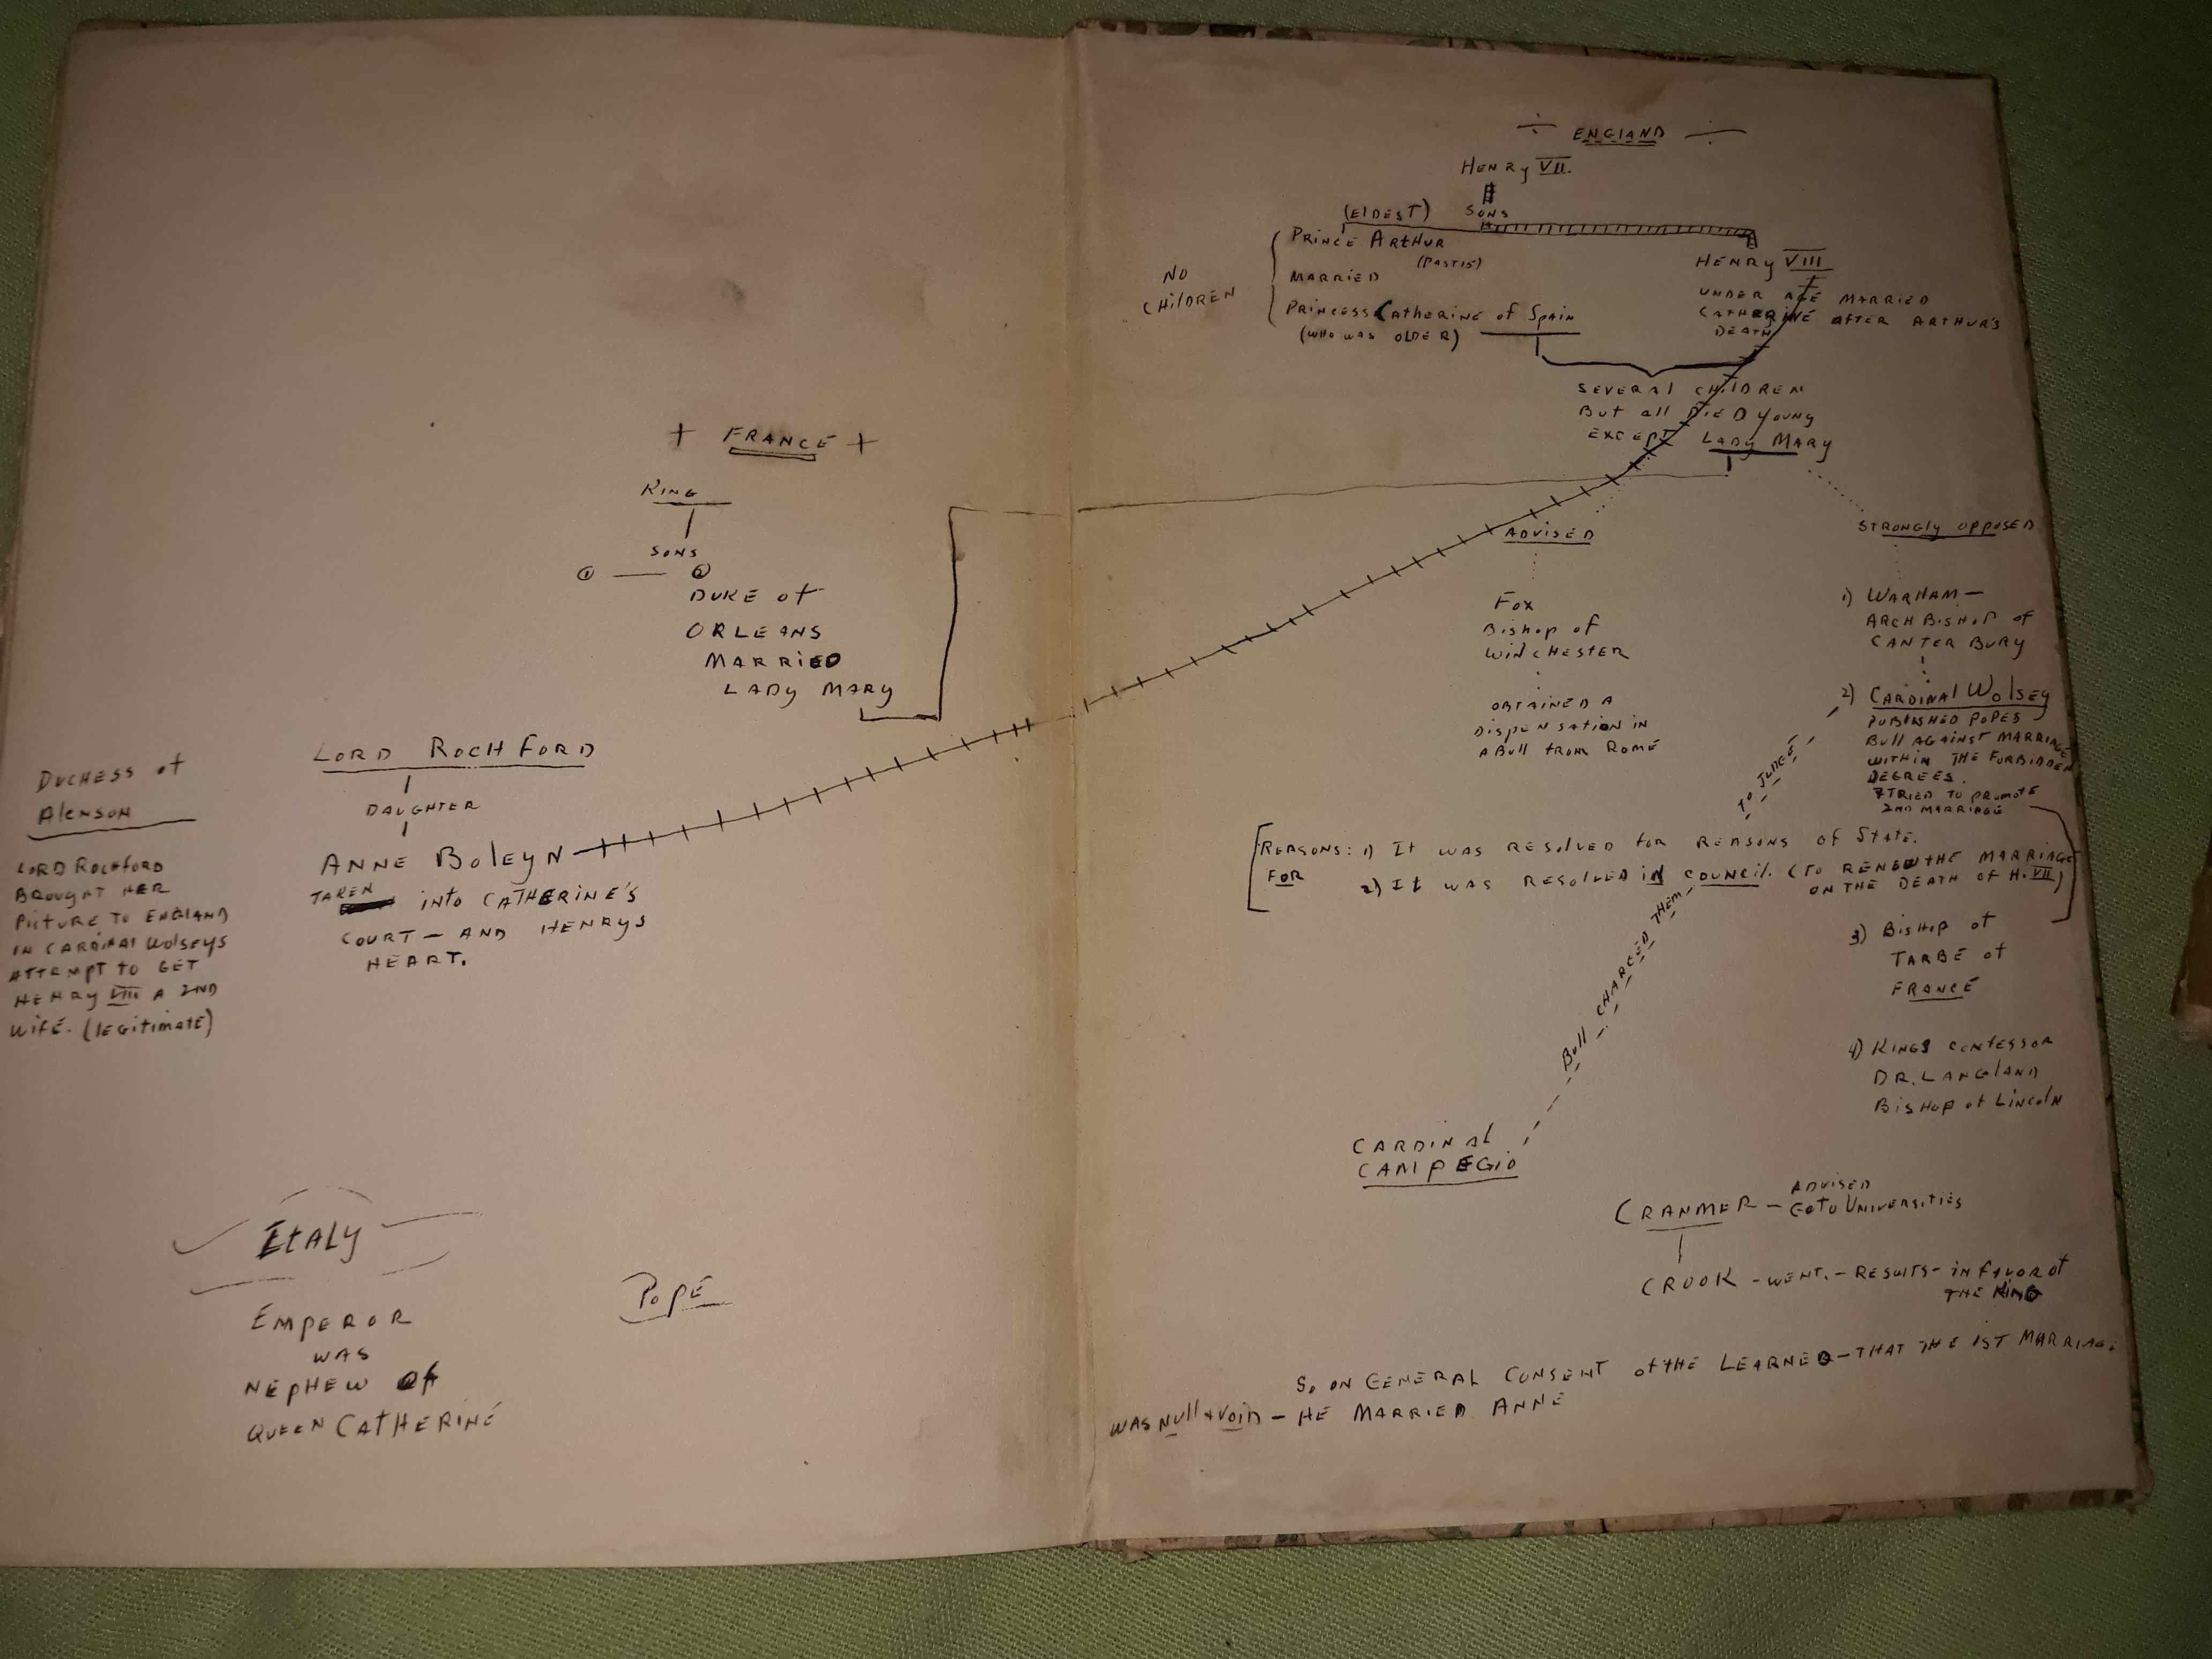 + FRANCE +
KING
SONS
① — ②
DUKE of
ORLEANS
MARRIED
LADY MARY
LORD ROCHFORD
DAUGHTER
ANNE BOLEYN
TAKEN INTO CATHERINE'S
COURT - AND HENRYS
HEART.
DUCHESS of
AlENSON
LORD ROCHFORD
BROUGHT HER
PICTURE TO ENGLAND
IN CARDINAL WOLSEYS
ATTEMPT TO GET
HENRY VIII A 2ND
WIFE. (LEGITIMATE)
ITALY
EMPEROR
WAS
NEPHEW of
QUEEN CATHERINE
POPE
ENGLAND
HENRY VII.
SONS
(ELDEST)
PRINCE ARTHUR
(PAST 15)
MARRIED
PRINCESS CATHERINE of SPAIN
(WHO WAS OLDER)
NO
CHILDREN
HENRY VIII
UNDER AGE MARRIED
CATHERINE AFTER ARTHUR'S
DEATH
SEVERAL CHILDREN
BUT all DIED YOUNG
EXCEPT LADY MARY
ADVISED
FOX
BISHOP of
WINCHESTER
OBTAINED A
DISPENSATION IN
A BULL FROM ROME
STRONGLY OPPOSED
1) WARHAM -
ARCH BISHOP of
CANTER BURY
2) CARDINAL WOLSEY
PUBLISHED POPES
BULL AGAINST MARRIAGE
WITHIN THE FORBIDDEN
DEGREES.
TRIED TO PROMOTE
2ND MARRIAGE
REASONS: 1) IT WAS RESOLVED FOR REASONS OF STATE.
FOR 2) IT WAS RESOLVED IN COUNCIL. (TO RENEW THE MARRIAGE
ON THE DEATH OF H. VII)
3) BISHOP of
TARBE of
FRANCE
4) KINGS CONFESSOR
DR. LANGLAND
BISHOP of LINCOLN
BULL CHARGED THEM TO JUDGE
CARDINAL
CAMPEGIO
CRANMER - ADVISED
GO TO UNIVERSITIES
CROOK - WENT. - RESULTS - IN FAVOR of
THE KING
SO ON GENERAL CONSENT of THE LEARNED - THAT THE 1ST MARRIAGE
WAS NULL + VOID - HE MARRIED ANNE